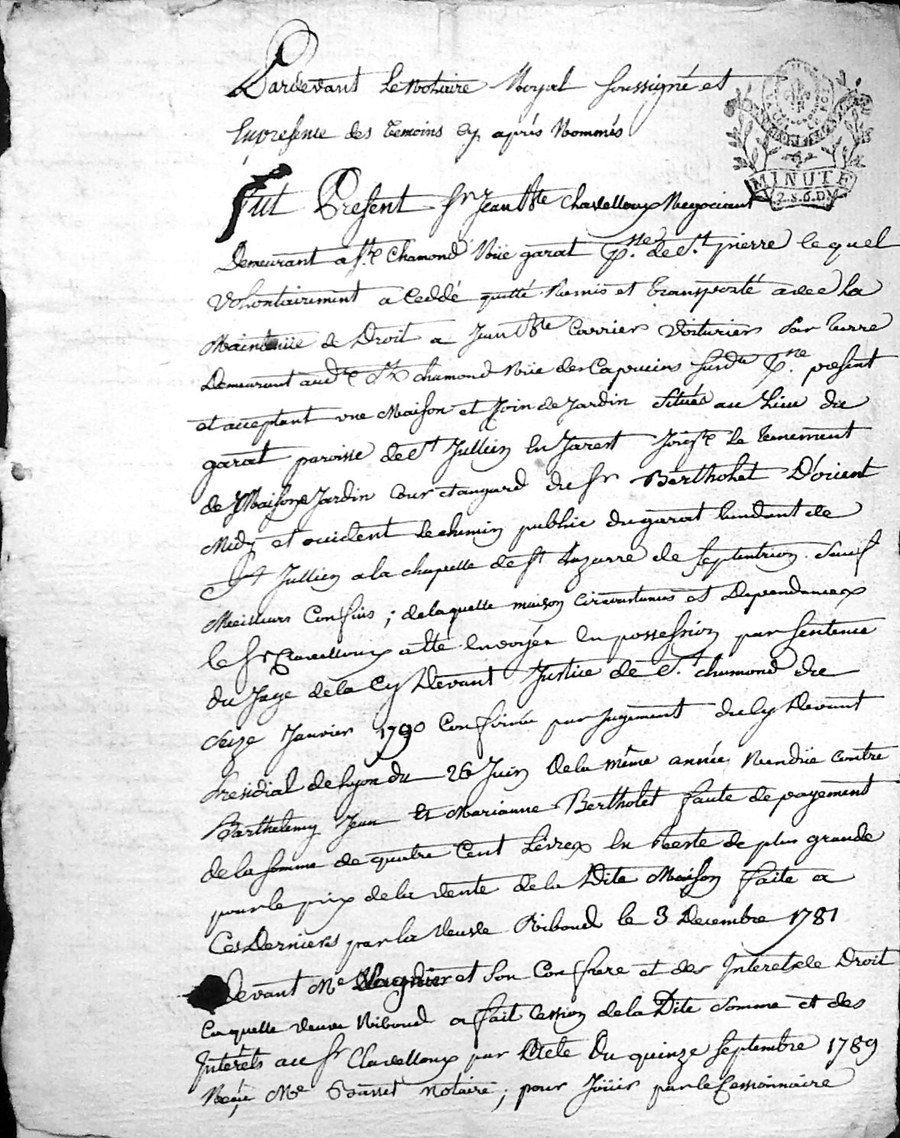 Pardevant Le Notaire Royal soussigné et
En presence des temoins cy après Nommés
MINUTE
2.s.6.D.
Fut Present Sr Jean Bte Chavelloux Negociant
Demeurant a St Chamond Rüe garat psse de St pierre lequel
Volontairement a Ceddé quitté Remis et transporté avec La
Maintenüe de Droit a Jean Bte Carrier Voiturier par terre
Demeurant aud. St Chamond Rüe des Capucins susde psse present
et acceptant une Maison et Join de Jardin Situés au Lieu du
garat paroisse de St Jullien En Jarest Joigt Le tenement
de Maison Jardin Cour et angard du Sr Bertholet D'orient
Midy et occident Le chemin public du garat tendant de
St Jullien a la chapelle de St Lazarre de Septentrion Sauf
Meilleurs Confins ; de laquelle maison circonstances et Dependances
le Sr Clavelloux a été Envoyée En possession par Sentence
du Juge de la Cy Devant Justice de St chamond du
Seize Janvier 1790 Confirmée par Jugement du Cy Devant
Presidial de Lyon du 26 Juin De la même année Rendüe contre
Barthelemy Jean Et Marianne Bertholet faute de payement
de la somme de quatre Cent Livres En Reste de plus grande
pour le prix de la vente de la Dite Maison faite a
Ces Derniers par la Veuve Riboud le 3 Decembre 1781
devant Me et Son Confrere et des Interets de Droit
Laquelle Veuve Riboud a fait Cession de la Dite Somme et des
Interêts au Sr Clavelloux par Acte Du quinze Septembre 1789
Reçu Me notaire ; pour Jouir par le Cessionnaire